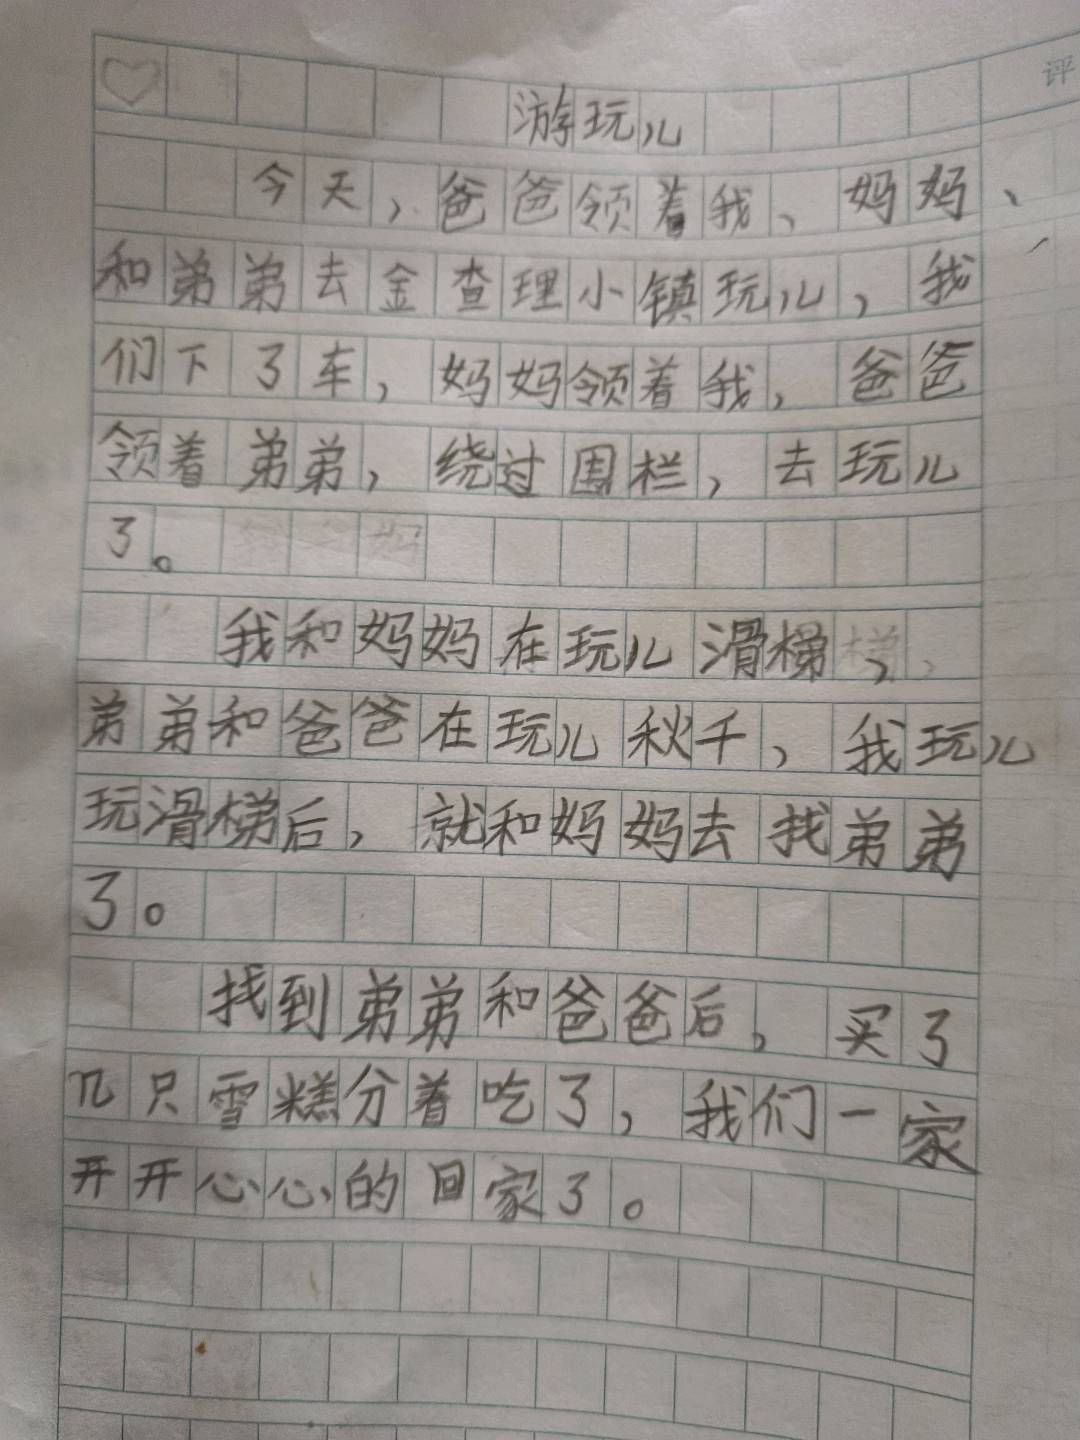 评
游玩儿
今天，爸爸领着我、妈妈、
和弟弟去金查理小镇玩儿，我
们下了车，妈妈领着我，爸爸
领着弟弟，绕过围栏，去玩儿
了。
我和妈妈在玩儿滑梯，
弟弟和爸爸在玩儿秋千，我玩儿
玩滑梯后，就和妈妈去找弟弟
了。
找到弟弟和爸爸后，买了
几只雪糕分着吃了，我们一家
开开心心的回家了。